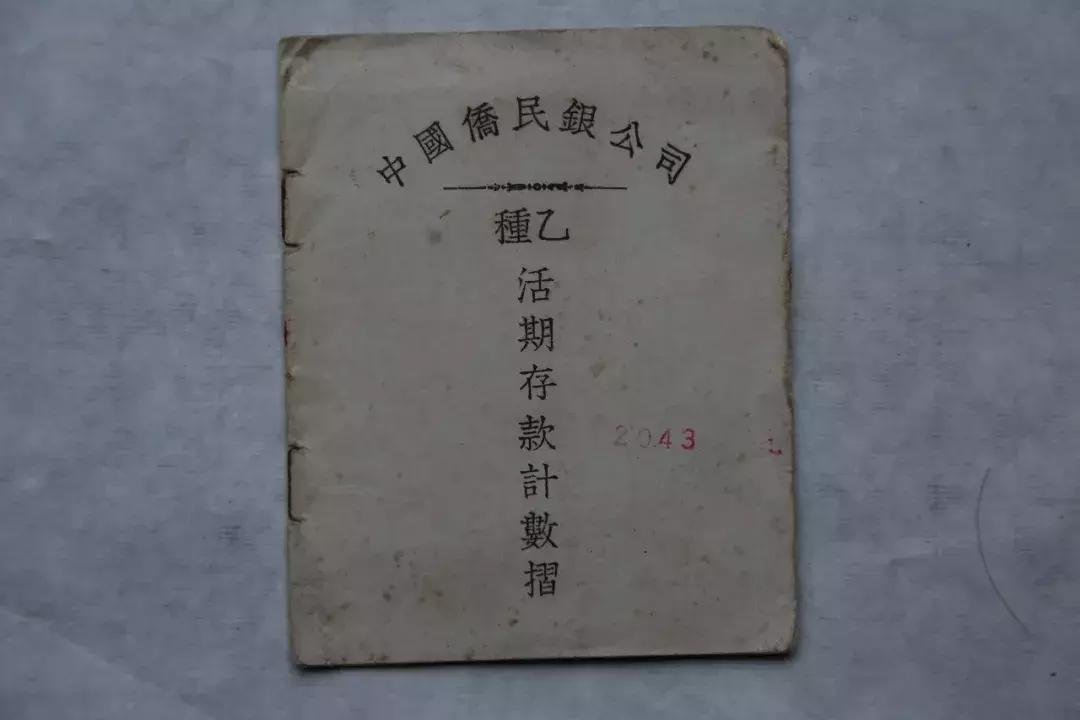 中國僑民銀公司
種乙
活期存款計數摺
2043